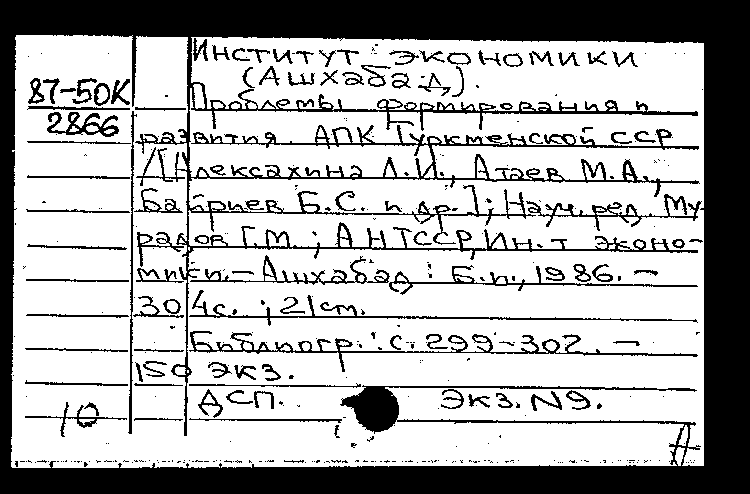 Институт экономики
(Ашхабад).
87-50К Проблемы формирования и
2866 развития АПК Туркменской ССР
/[Алексахина Л.И., Атаев М.А.,
Байриев Б.С. и др.]; Науч. ред. Му-
радов Г.М.; АН ТССР, Ин-т эконо-
мики.- Ашхабад: Б.и., 1986. -
304с. ; 21см.
Библиогр.: с. 299-302. -
150 экз.
ДСП. Экз. N9.
10
А